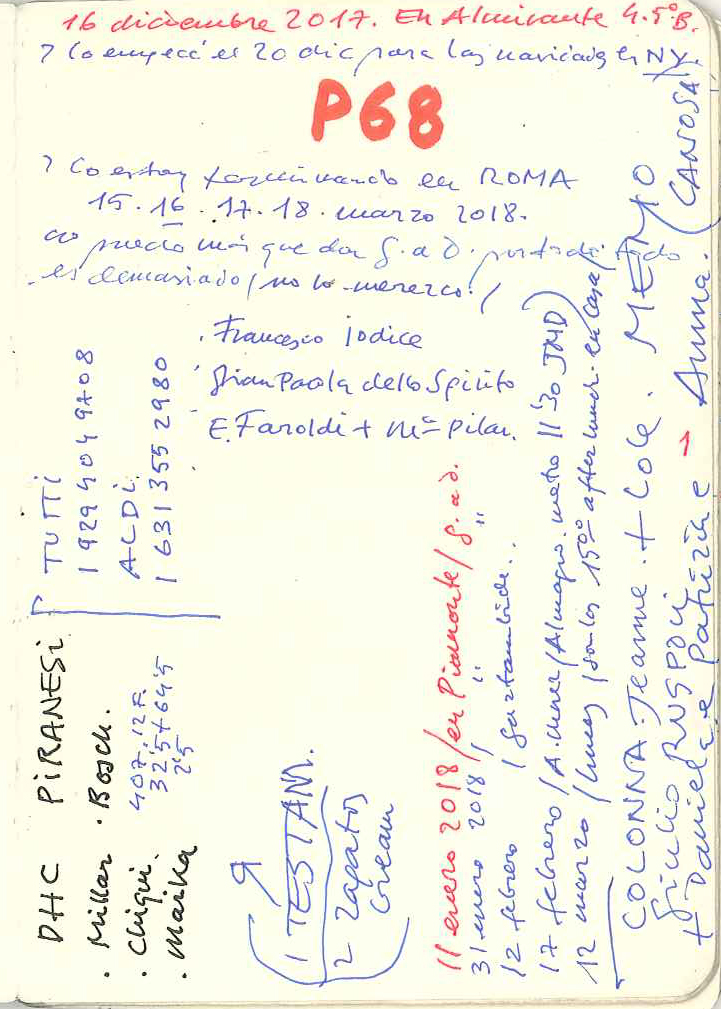 16 diciembre 2017. En Almirante 4.5ºB.
? lo empecé el 20 dic para las navidades en NY.
P68
? lo estoy terminando en ROMA
15.16.17.18. marzo 2018.
no puedo más que dar g. a D. por todo
es demasiado / no lo merezco. /
. Francesco Iodice
. Gian Paola dello Spirito
. E. Faroldi + Mª Pilar.
TUTTI
1 929 404 9708
ALDI.
1 631 355 2980
DHC PIRANESI
. Millar . Bosch.
. Chiqui. 407.12 F.
325+645
25
. Marka
1 TESTAM.
2 zapatos
cream
11 enero 2018 / en Piamonte / g. a D.
31 enero 2018 / " "
12 febrero / Gaztambide. .
17 febrero / A. / Almagro. metro 11'30 JMD)
12 marzo / lunes / 15ºº after lunch. en casa /
COLONNA. Jeanne. + Cole. MEMO
Giulio RUSPOLI
+ Daniela e Patrizia e 1 Anna. / CANOSA